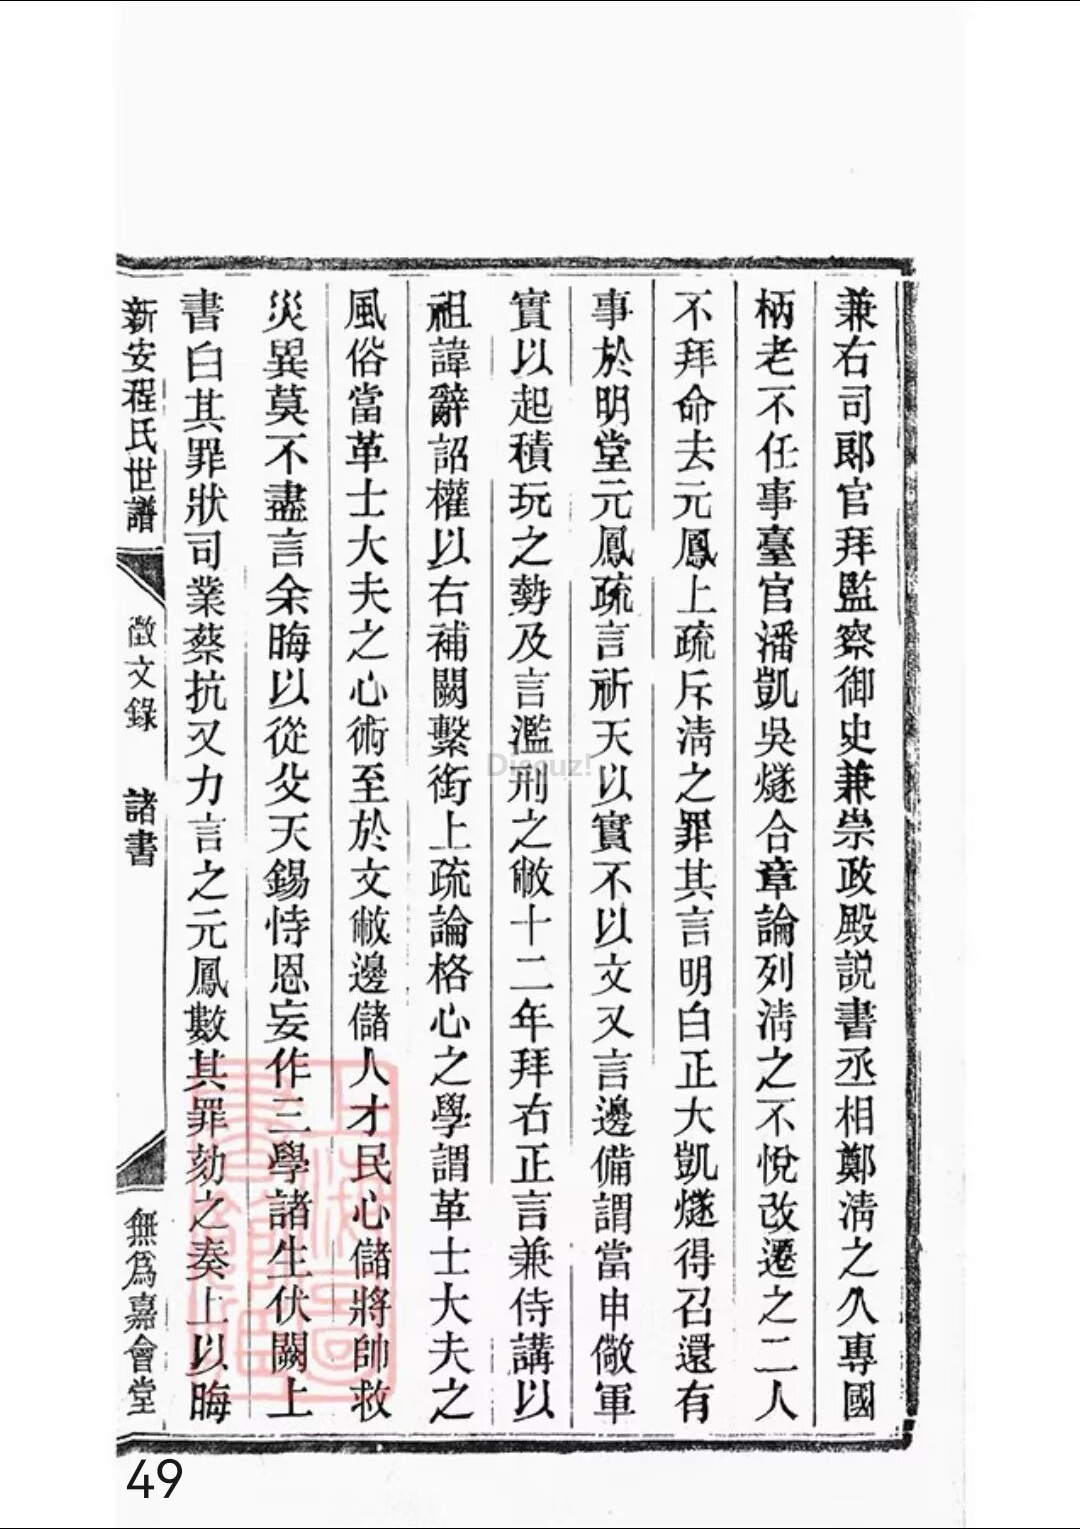 兼右司郎官拜監察御史兼崇政殿說書丞相鄭清之久專國
柄老不任事臺官潘凱吳燧合章論列清之不悅改遷之二人
不拜命去元鳳上疏斥清之罪其言明白正大凱燧得召還有
事於明堂元鳳疏言祈天以實不以文又言邊備謂當申儆軍
實以起積玩之勢及言濫刑之敝十二年拜右正言兼侍講以
祖諱辭詔權以右補闕繫銜上疏論格心之學謂革士大夫之
風俗當革士大夫之心術至於文敝邊儲人才民心儲將帥救
災異莫不盡言余晦以從父天錫恃恩妄作三學諸生伏闕上
書白其罪狀司業蔡抗又力言之元鳳數其罪劾之奏上以晦
新安程氏世譜
徵文錄
諸書
無為嘉會堂
上海圖書館藏
Discuz!
49